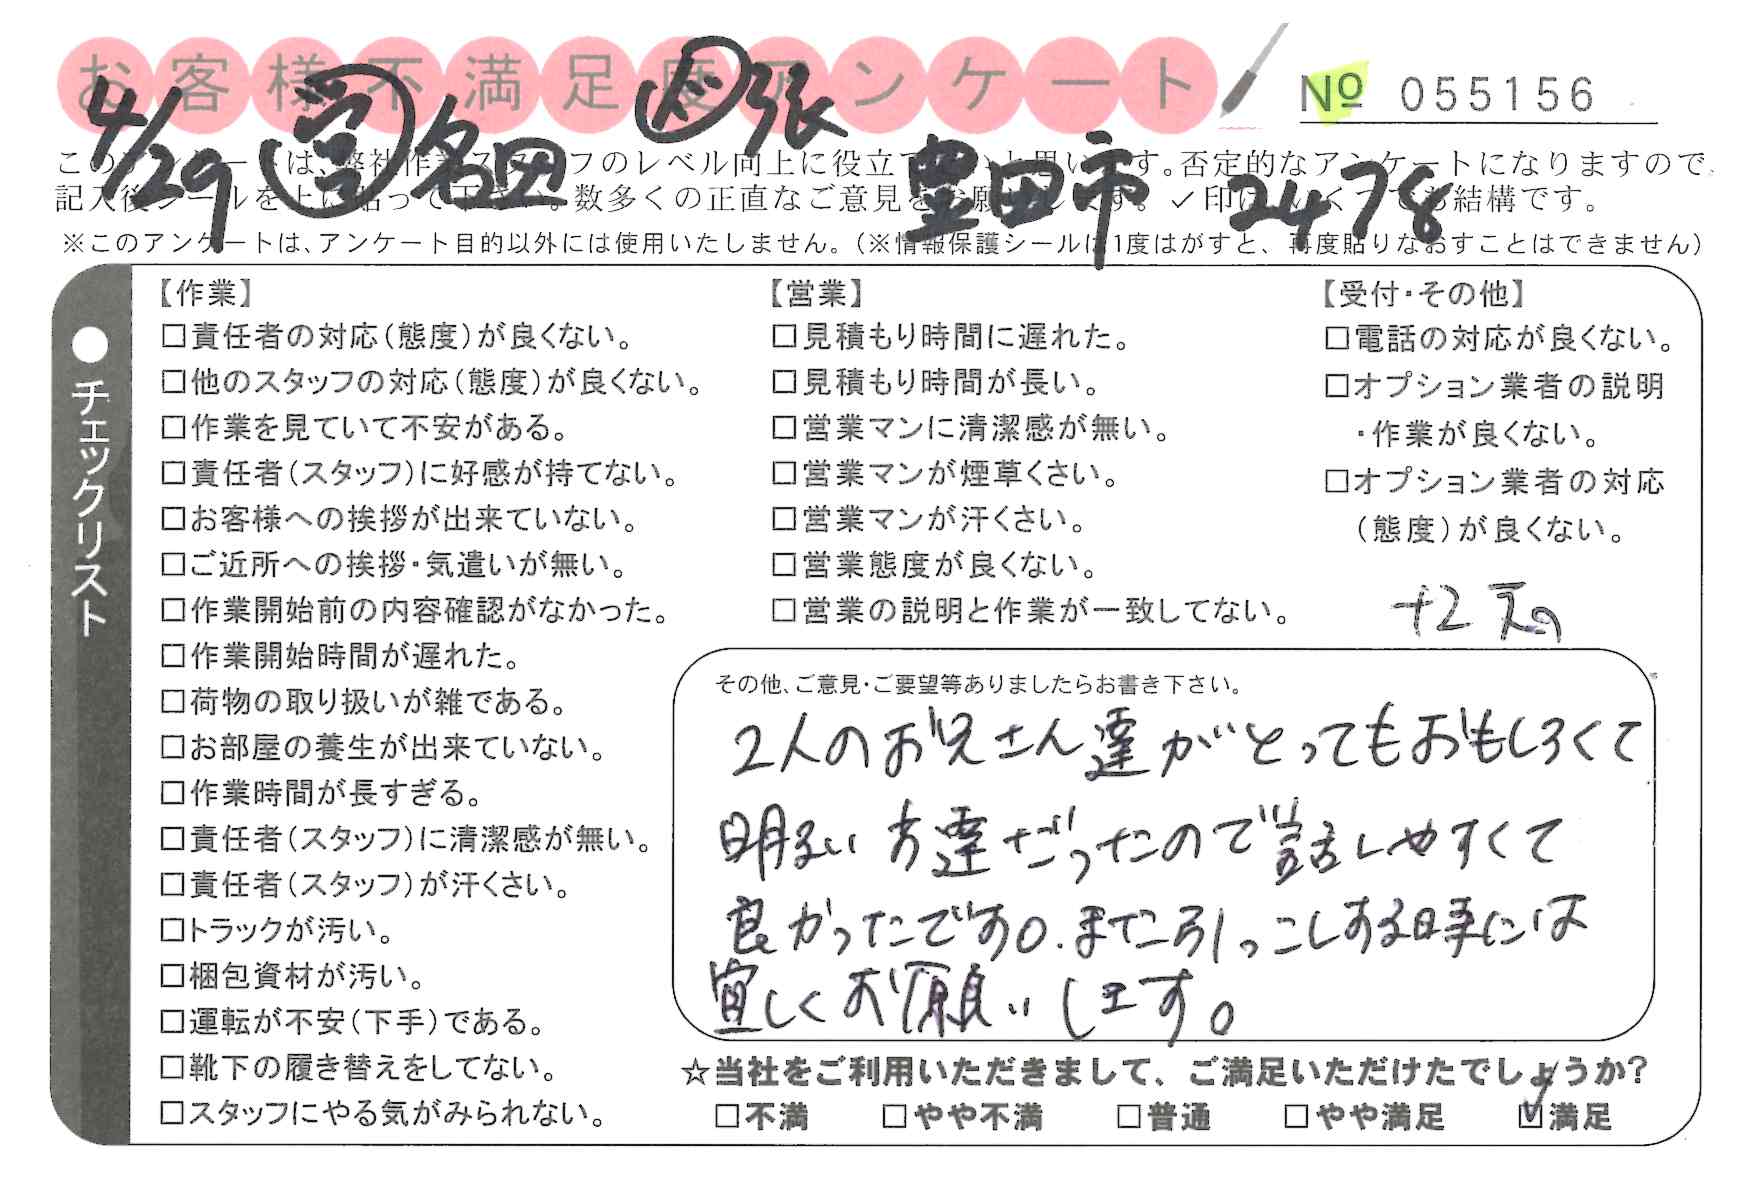 お客様不満足度アンケート
№ 055156
4/29 営 名田 張 豊田市 2478
このアンケートは、弊社作業スタッフのレベル向上に役立てたいと思います。否定的なアンケートになりますので、
記入後シールを上に貼って下さい。数多くの正直なご意見をお願いします。✓印はいくつでも結構です。
※このアンケートは、アンケート目的以外には使用いたしません。(※情報保護シールは1度はがすと、再度貼りなおすことはできません)
●チェックリスト
【作業】
□責任者の対応(態度)が良くない。
□他のスタッフの対応(態度)が良くない。
□作業を見ていて不安がある。
□責任者(スタッフ)に好感が持てない。
□お客様への挨拶が出来ていない。
□ご近所への挨拶・気遣いが無い。
□作業開始前の内容確認がなかった。
□作業開始時間が遅れた。
□荷物の取り扱いが雑である。
□お部屋の養生が出来ていない。
□作業時間が長すぎる。
□責任者(スタッフ)に清潔感が無い。
□責任者(スタッフ)が汗くさい。
□トラックが汚い。
□梱包資材が汚い。
□運転が不安(下手)である。
□靴下の履き替えをしてない。
□スタッフにやる気がみられない。
【営業】
□見積もり時間に遅れた。
□見積もり時間が長い。
□営業マンに清潔感が無い。
□営業マンが煙草くさい。
□営業マンが汗くさい。
□営業態度が良くない。
□営業の説明と作業が一致してない。
【受付・その他】
□電話の対応が良くない。
□オプション業者の説明
・作業が良くない。
□オプション業者の対応
(態度)が良くない。
+2
その他、ご意見・ご要望等ありましたらお書き下さい。
2人のお兄さん達がとってもおもしろくて
明るい方達だったので話しやすくて
良かったです。また引っこしする時には
宜しくお願いします。
☆当社をご利用いただきまして、ご満足いただけたでしょうか?
□不満 □やや不満 □普通 □やや満足 ☑満足